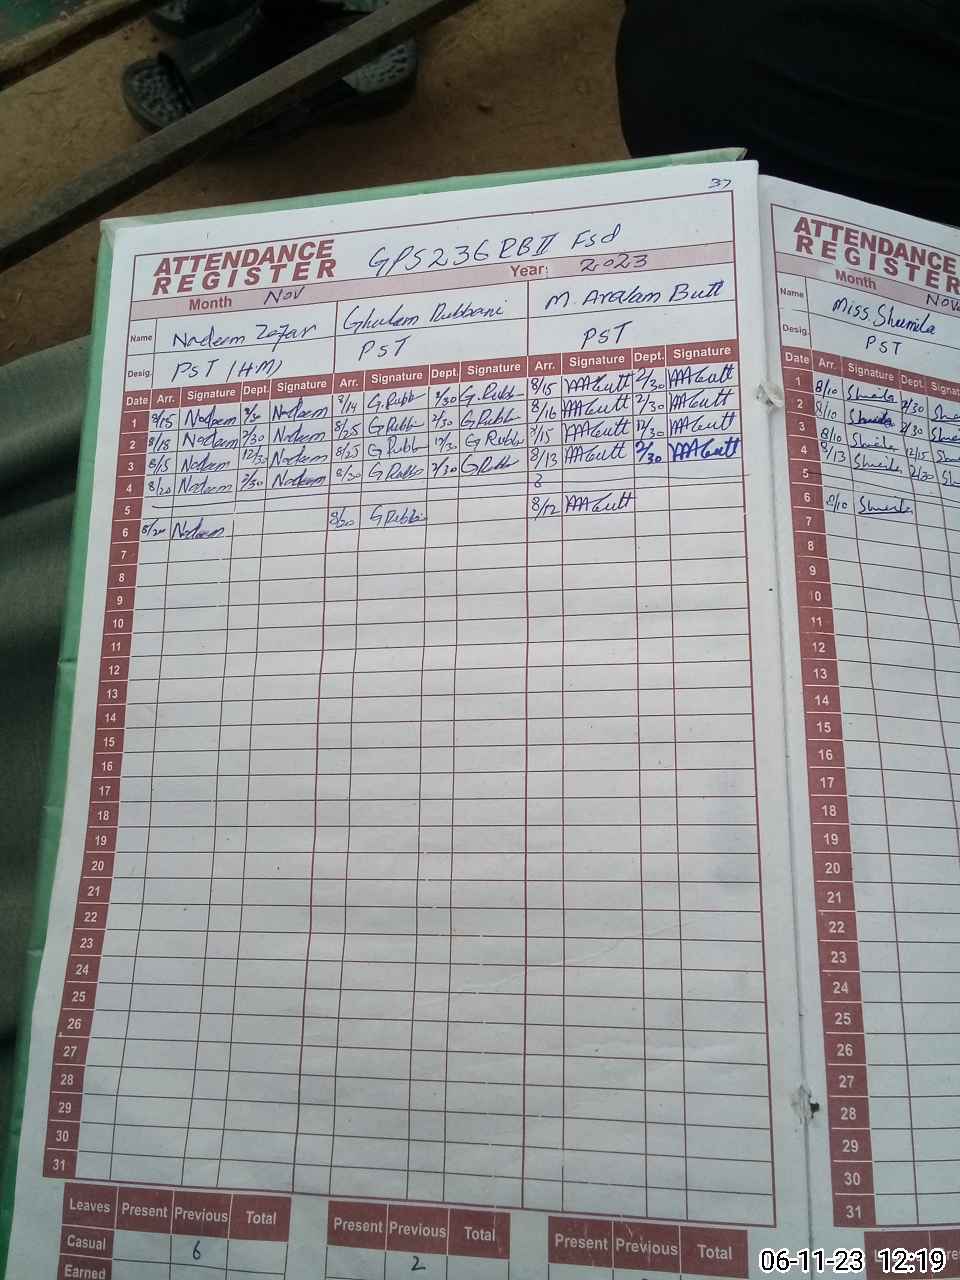 37
ATTENDANCE REGISTER GPS 236 RB II Fsd
Month Nov Year: 2023
Name Nadeem Zafar Ghulam Rubbani M. Arslam Butt
Desig. PST (HM) PST PST
Date Arr. Signature Dept. Signature Arr. Signature Dept. Signature Arr. Signature Dept. Signature
1 8/15 Nadeem 2/30 Nadeem 8/14 G.Rubb 2/30 G.Rubb 8/15 MAButt 2/30 MAButt
2 8/18 Nadeem 2/30 Nadeem 8/25 G.Rubb 2/30 G.Rubb 8/16 MAButt 2/30 MAButt
3 8/15 Nadeem 12/30 Nadeem 8/25 G Rubb 12/30 G Rubb 8/15 MAButt 12/30 MAButt
4 8/20 Nadeem 2/30 Nadeem 8/30 G Rubb 2/30 G Rubb 8/13 MAButt 2/30 MAButt
5
6 8/20 Nadeem 8/20 G Rubbani 8/12 MAButt
7
8
9
10
11
12
13
14
15
16
17
18
19
20
21
22
23
24
25
26
27
28
29
30
31
Leaves Present Previous Total Present Previous Total Present Previous Total
Casual 6 2
Earned
ATTENDANCE REGISTER
Month Nov
Name Miss Shumila
Desig. PST
Date Arr. Signature Dept.
1 8/10 Shumila 2/30
2 8/10 Shumila 2/30
3 8/10 Shumila 12/15
4 8/13 Shumila 2/30
5
6 8/10 Shumila
7
8
9
10
11
12
13
14
15
16
17
18
19
20
21
22
23
24
25
26
27
28
29
30
31
06-11-23 12:19